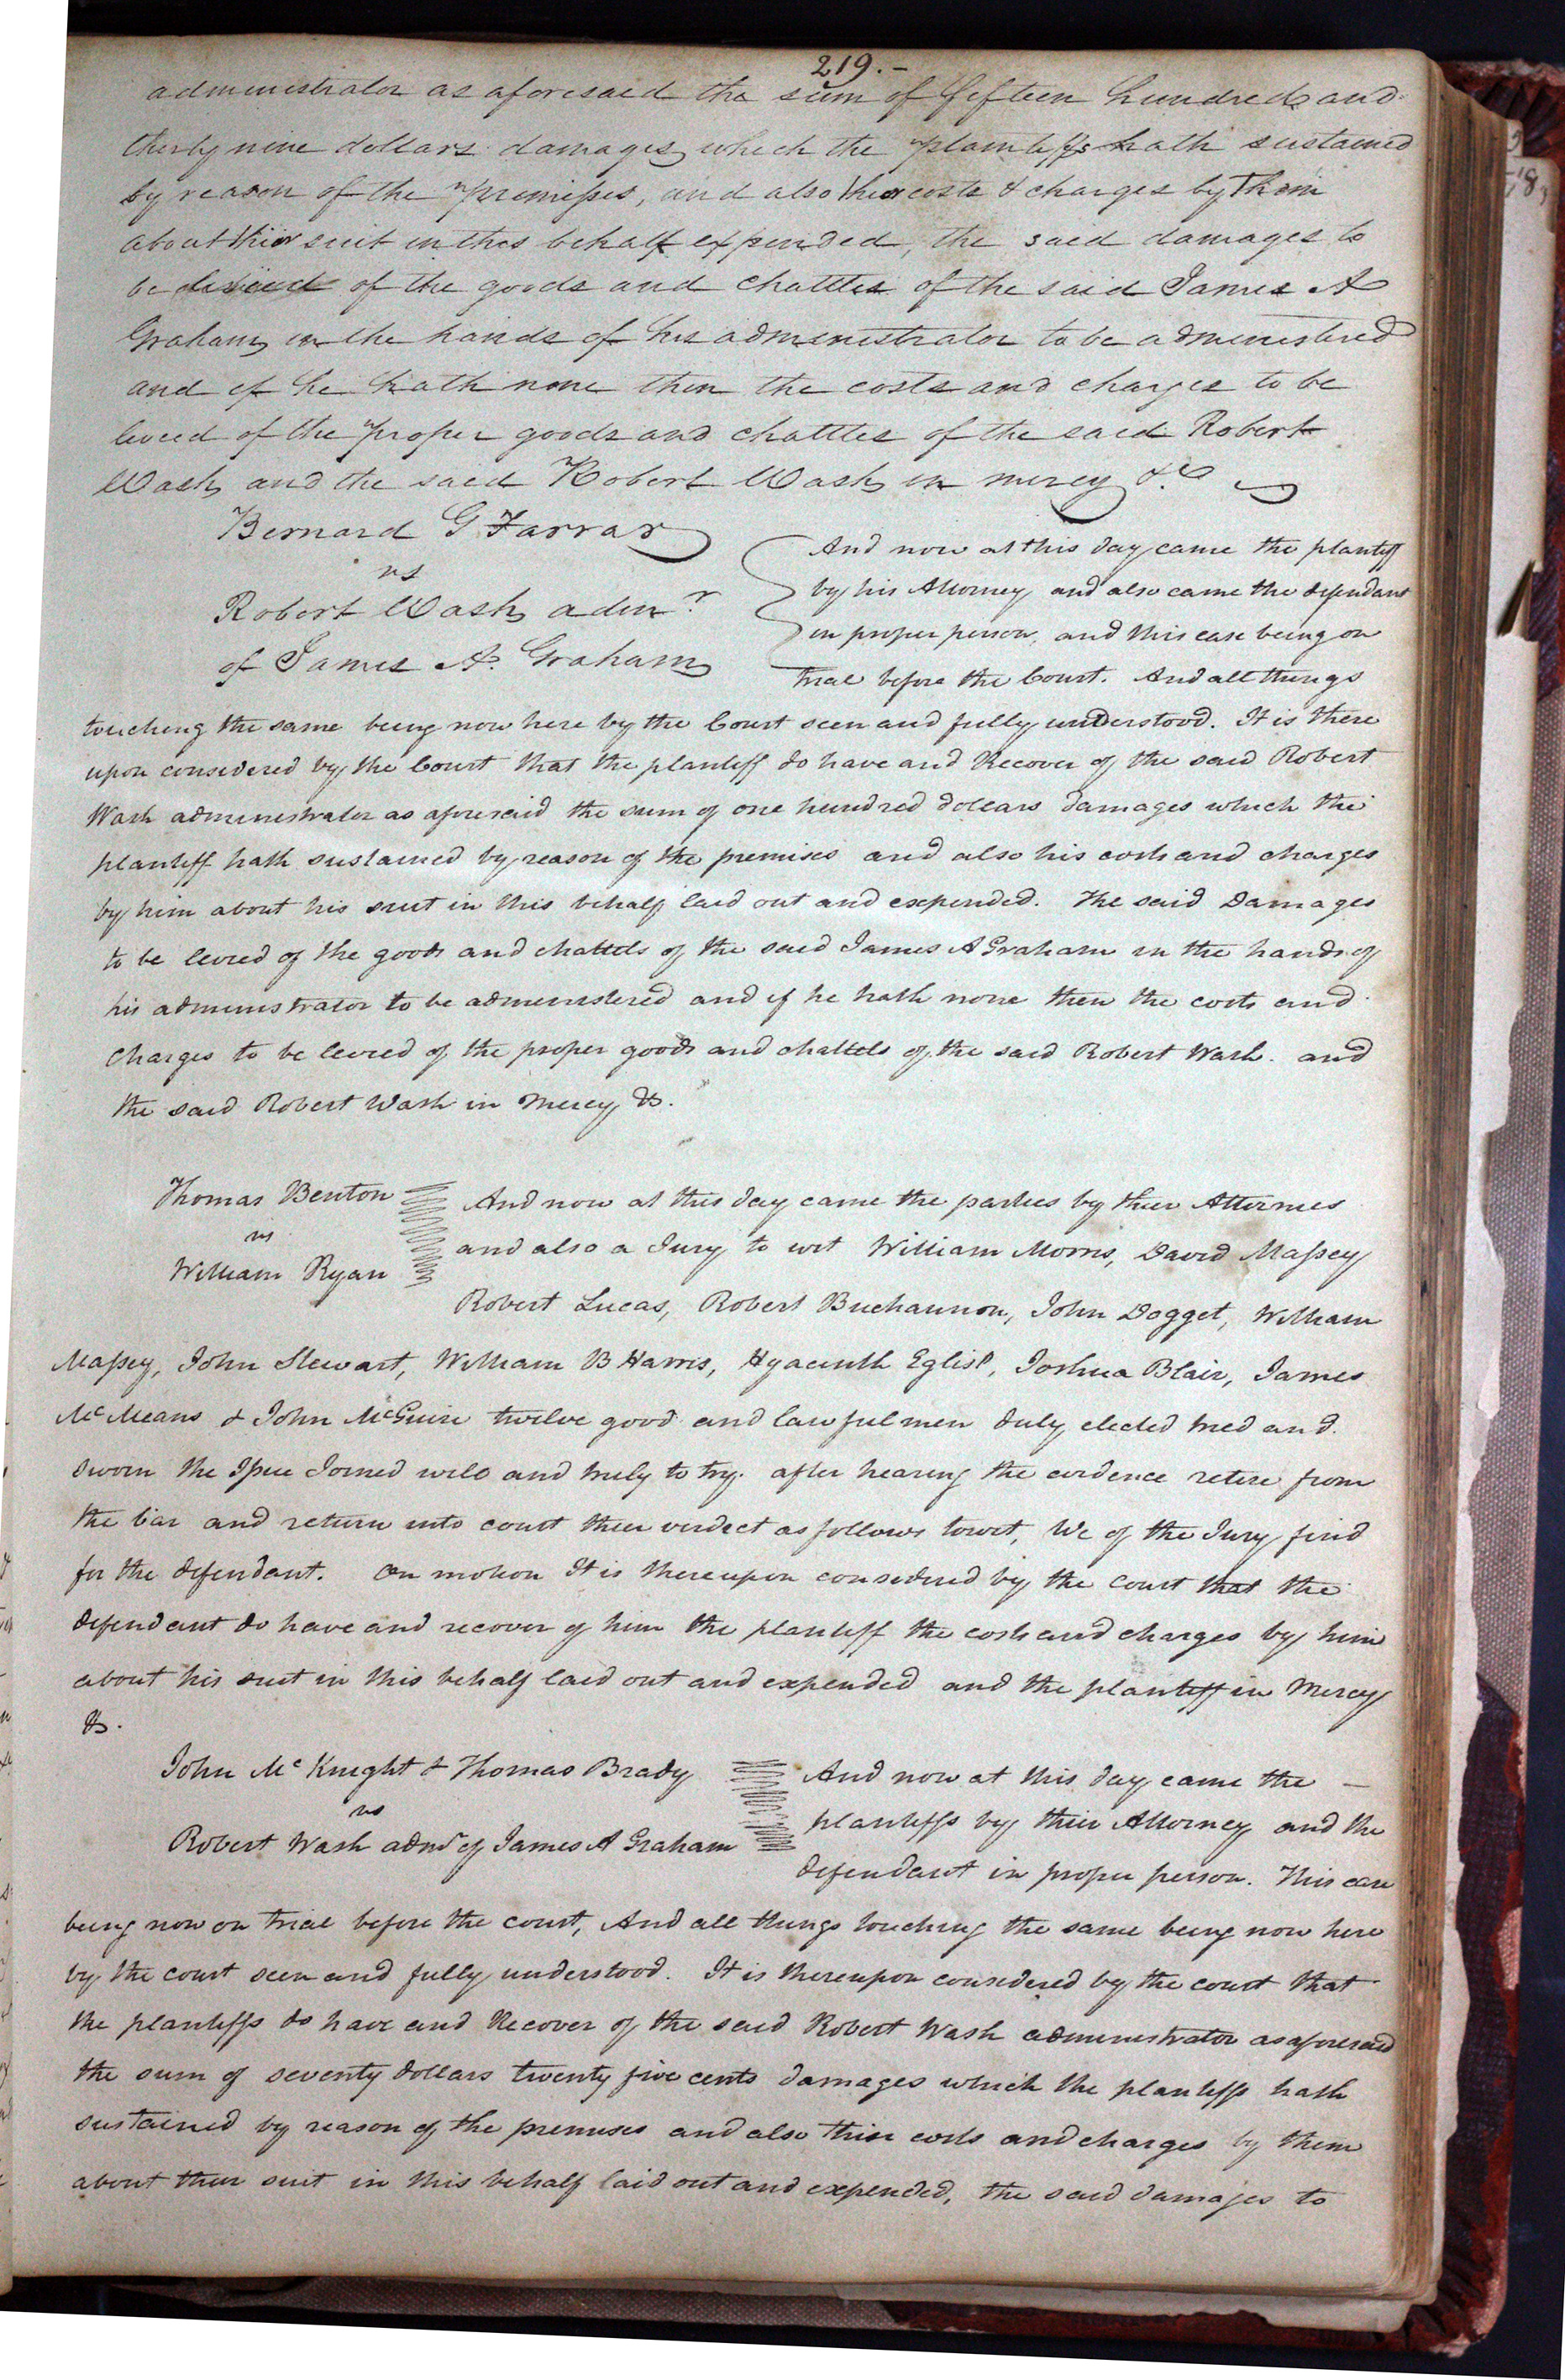 219.-
administrator as aforesaid the sum of fifteen hundred and
thirty nine dollars damages which the plaintiffs hath sustained
by reason of the premisses, and also their costs & charges by them
about their suit in this behalf expended, the said damages to
be levied of the goods and chattles of the said James A
Graham in the hands of his administrator to be administered
and if he hath none then the costs and charges to be
levied of the proper goods and chattles of the said Robert
Wash and the said Robert Wash in mercy &c
Bernard G Farrar
vs
Robert Wash admr
of James A. Graham
And now at this day came the plantiff
by his Attorney and also came the defendant
in proper person, and this case being on
trial before the Court. And all things
touching the same being now here by the Court seen and fully understood. It is there
upon considered by the Court that the plantiff do have and Recover of the said Robert
Wash administrator as aforesaid the sum of one hundred dollars damages which the
plantiff hath sustained by reason of the premises and also his costs and charges
by him about his suit in this behalf laid out and expended. The said Damages
to be levied of the goods and chattels of the said James A Graham in the hands of
his administrator to be administered and if he hath none then the costs and
Charges to be levied of the proper goods and chattels of the said Robert Wash. and
the said Robert Wash in Mercy &c.
Thomas Benton
vs
William Ryan
And now at this day came the parties by their Attornies
and also a Jury to wit William Morris, David Massey
Robert Lucas, Robert Buchannon, John Dogget, William
Massey, John Stewart, William B Harris, Hyacinth Eglise, Joshua Blair, James
McMeans & John McGuire twelve good and lawful men duly elected tried and
sworn the Issue Joined well and truly to try. after hearing the evidence retire from
the bar and return into court their verdect as follows towit, We of the Jury find
for the defendant. On motion It is thereupon considered by the Court that the
defendant do have and recover of him the plantiff the costs and charges by him
about his suit in this behalf laid out and expended and the plantiff in Mercy
&c.
John McKnight & Thomas Brady
vs
Robert Wash admr of James A Graham
And now at this day came the -
plantiffs by their Attorney and the
defendant in proper person. This case
being now on trial before the court, And all things touching the same being now here
by the court seen and fully understood. It is thereupon considered by the court that
the plantiffs do have and Recover of the said Robert Wash administrator as aforesaid
the sum of seventy dollars twenty five cents damages which the plantiffs hath
sustained by reason of the premises and also their costs and charges by them
about their suit in this behalf laid out and expended, the said damages to